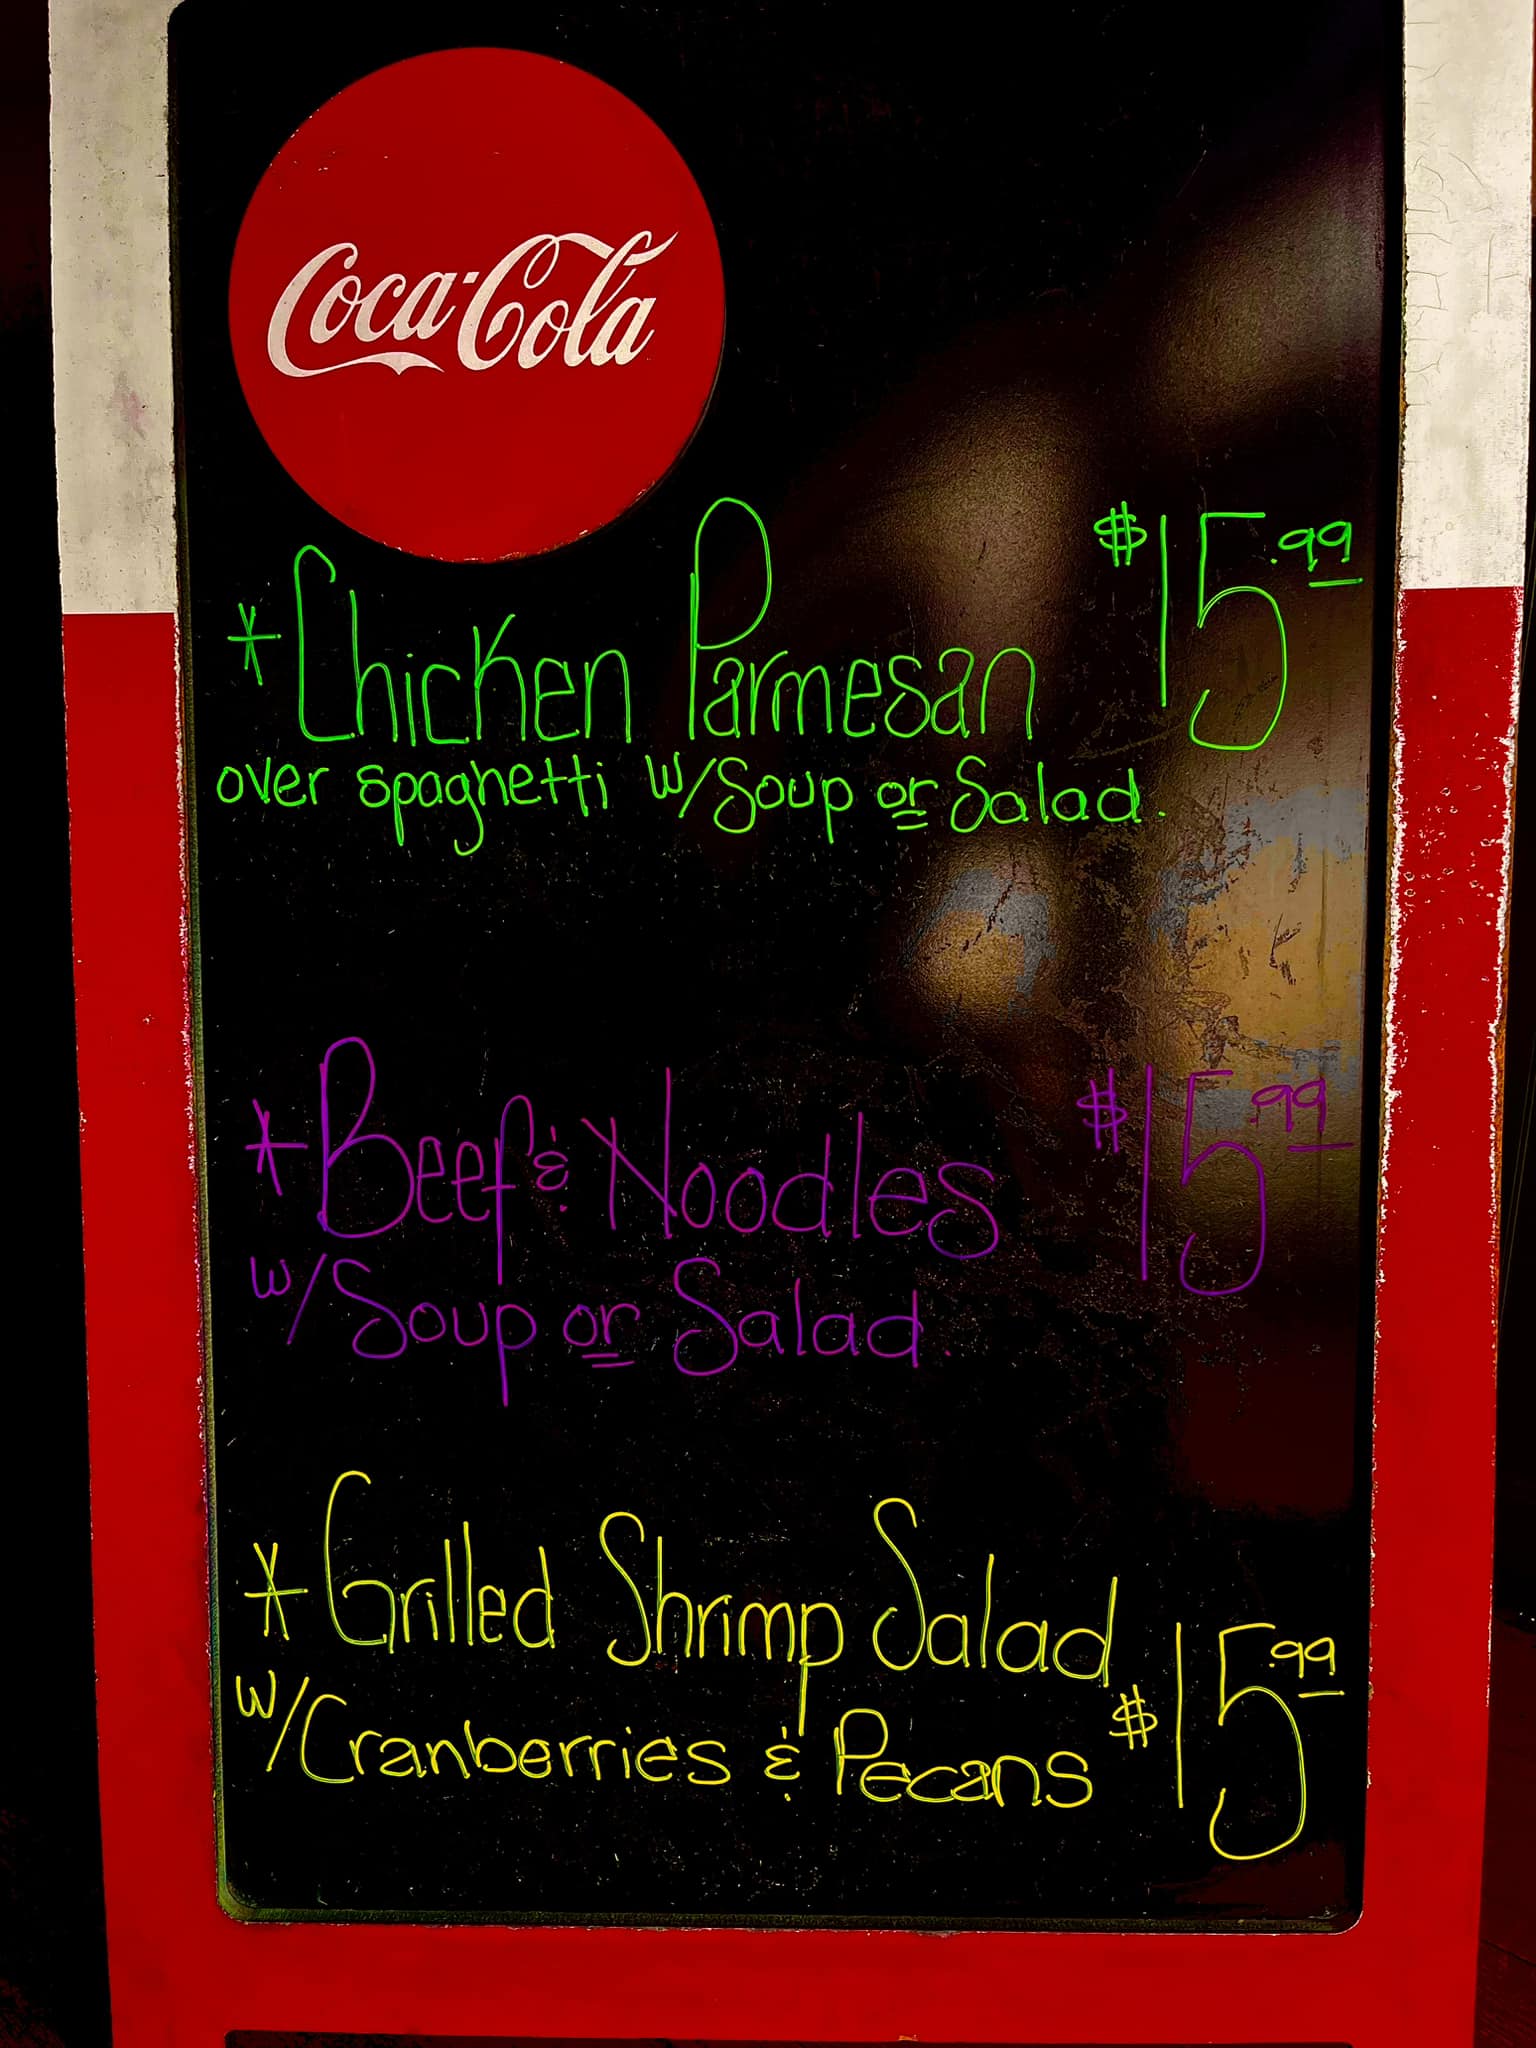 Coca-Cola
*Chicken Parmesan $15.99
over spaghetti w/Soup or Salad.
*Beef & Noodles $15.99
w/Soup or Salad.
*Grilled Shrimp Salad
w/Cranberries & Pecans $15.99